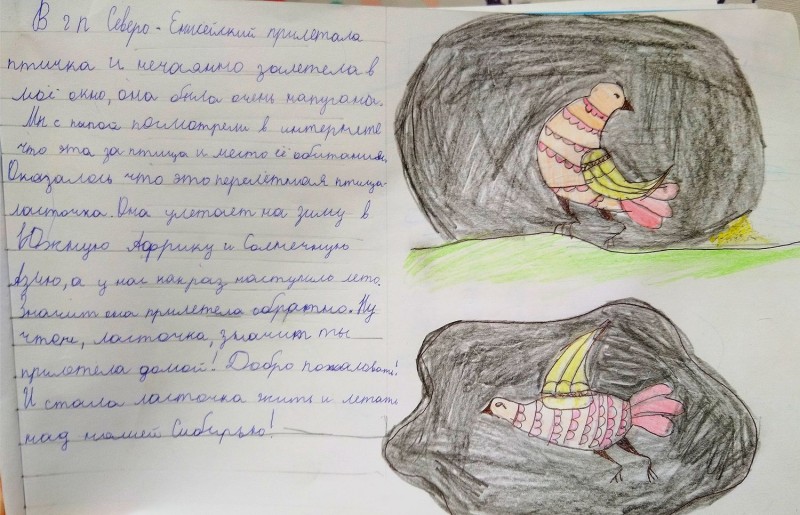 В г п Северо-Енисейский прилетала
птичка и нечаянно залетела в
моё окно, она была очень напугана.
Мы с папой посмотрели в интернете
что эта за птица и место её обитания.
Оказалось что это перелетная птица-
ласточка. Она улетает на зиму в
Южную Африку и Солнечную
Азию, а у нас как раз наступило лето.
Значит она прилетела обратно. Ну
чтож, ласточка, значит ты
прилетела домой! Добро пожаловать!
И стала ласточка жить и летать
над нашей Сибирью!